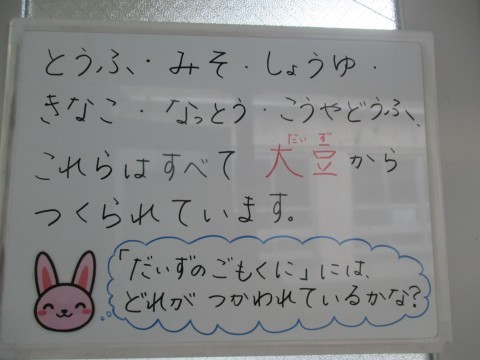 とうふ・みそ・しょうゆ・
きなこ・なっとう・こうやどうふ、
これらはすべて 大豆から
だいず
つくられています。
「だいずのごもくに」には、
どれが つかわれているかな?